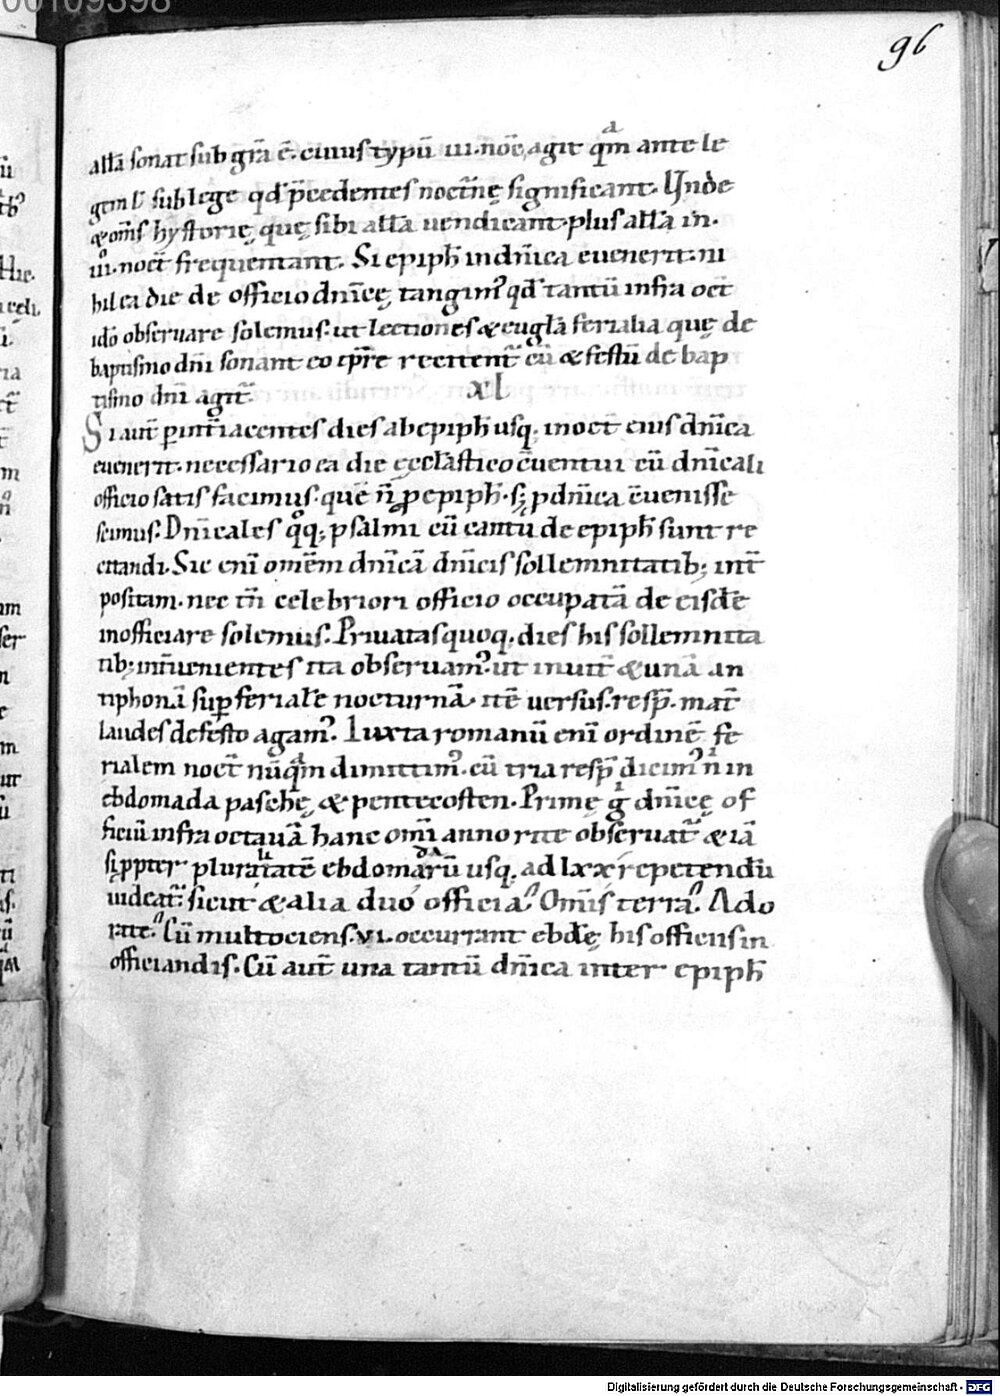 00109398
96
allã sonat sub gr̃a ẽ. cuius typũ .iii. noc̃. agit qm̃ ante le
gem ł sub lege qd̃ p̃cedentes noct̃nę significant. Unde
& om̃s hystorię. quę sibi allã uendicant. plus allã in
.iii. noct̃ frequentant. Si epiph̃ in dñica euenerit. ni
hil ea die de officio dñicę tangim᷒ qd̃ tantũ infra oct̃
ido obseruare solemus. ut lectiones & eugl̃a ferialia quę de
baptismo dñi sonant eo tp̃re recitent̃ cũ & festũ de bap
tismo dñi agit̃.
xl
Si aut̃ p int̃iacentes dies ab epiph̃ usq; in oct̃ eius dñica
euenerit. necessario ea die ęcclãstico cuentui cũ dñicali
officio satis facimus. quẽ ñ p epiph̃. s; p dñica cuenisse
scimus. Dñicales qq; psalmi cũ cantũ de epiph̃ sunt re
citandi. Sic eni omẽm dñicã dñicis sollemnitatib; int̃
positam. nec tñ celebriori officio occupatã de eisdẽ
inofficiare solemus. Priuatas quoq. dies his sollemnita
tib; int̃uenientes ita obseruam᷒. ut inuit̃ & unã an
tiphonã sup feriale nocturnã. itẽ uersus. resp̃. mat̃
laudes de festo agam᷒. Iuxta romanũ eni ordinẽ fe
rialem noct̃ nũqm̃ dimittim᷒. cũ tria resp̃ dicim᷒ ñ in
ebdomada paschę & pentecosten. Primę g dñicę of
ficiũ infra octauã hanc omĩ anno rite obseruat̃ & iã
si ppter pluralitatẽ ebdomadarũ usq. ad lxx repetendũ
uideat̃. sicut & alia duo officia. Omis terra. Ado
rate. Cũ multociens .vi. occurrant ebdẽ his officiis in
officiandis. Cũ aut̃ una tantũ dñica inter epiph̃
Digitalisierung gefördert durch die Deutsche Forschungsgemeinschaft - DFG